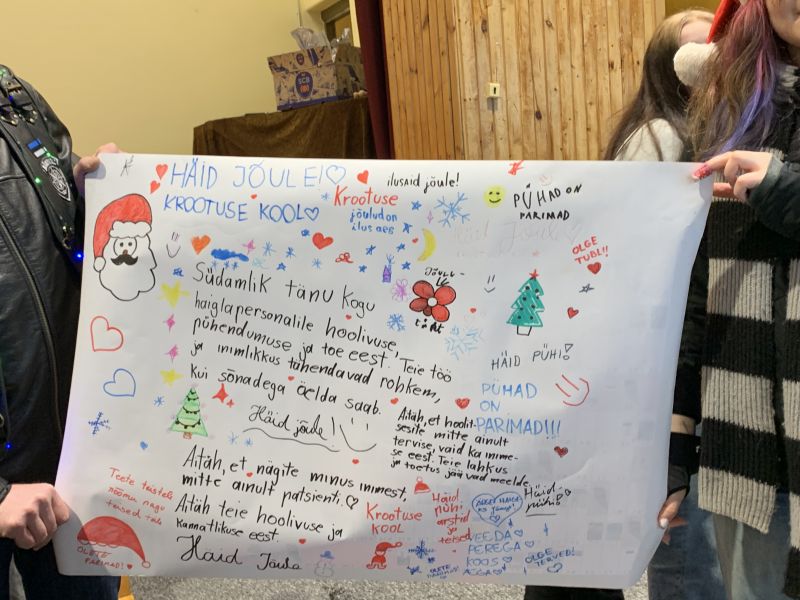 HÄID JÕULE!
KROOTUSE KOOL
Krootuse
jõulud on
ilus aeg
ilusaid jõule!
PÜHAD ON
PARIMAD
OLGE
TUBLI!!
Südamlik tänu kogu
haiglapersonalile hoolivuse,
pühendumuse ja toe eest. Teie töö
ja inimlikkus tähendavad rohkem,
kui sõnadega öelda saab.
Häid jõule!
Jõulu-
täht
HÄID PÜHI!
PÜHAD
ON
PARIMAD!!!
Aitäh, et hoolit-
sesite mitte ainult
tervise, vaid ka inime-
se eest. Teie lahkus
ja toetus jäävad meelde.
Aitäh, et nägite minus inimest,
mitte ainult patsienti.
Aitäh teie hoolivuse ja
kannatlikuse eest.
Häid Jõule
Teete teistele
rõõmu nagu
teised teile
OLETE
PARIMAD!
Krootuse
KOOL
Häid
püh.
arstid
ja
teised
Häid
pühi!
VEEDA
PEREGA
KOOS
AEGA
OLGE TERVED!
OLETE
PARIMAD